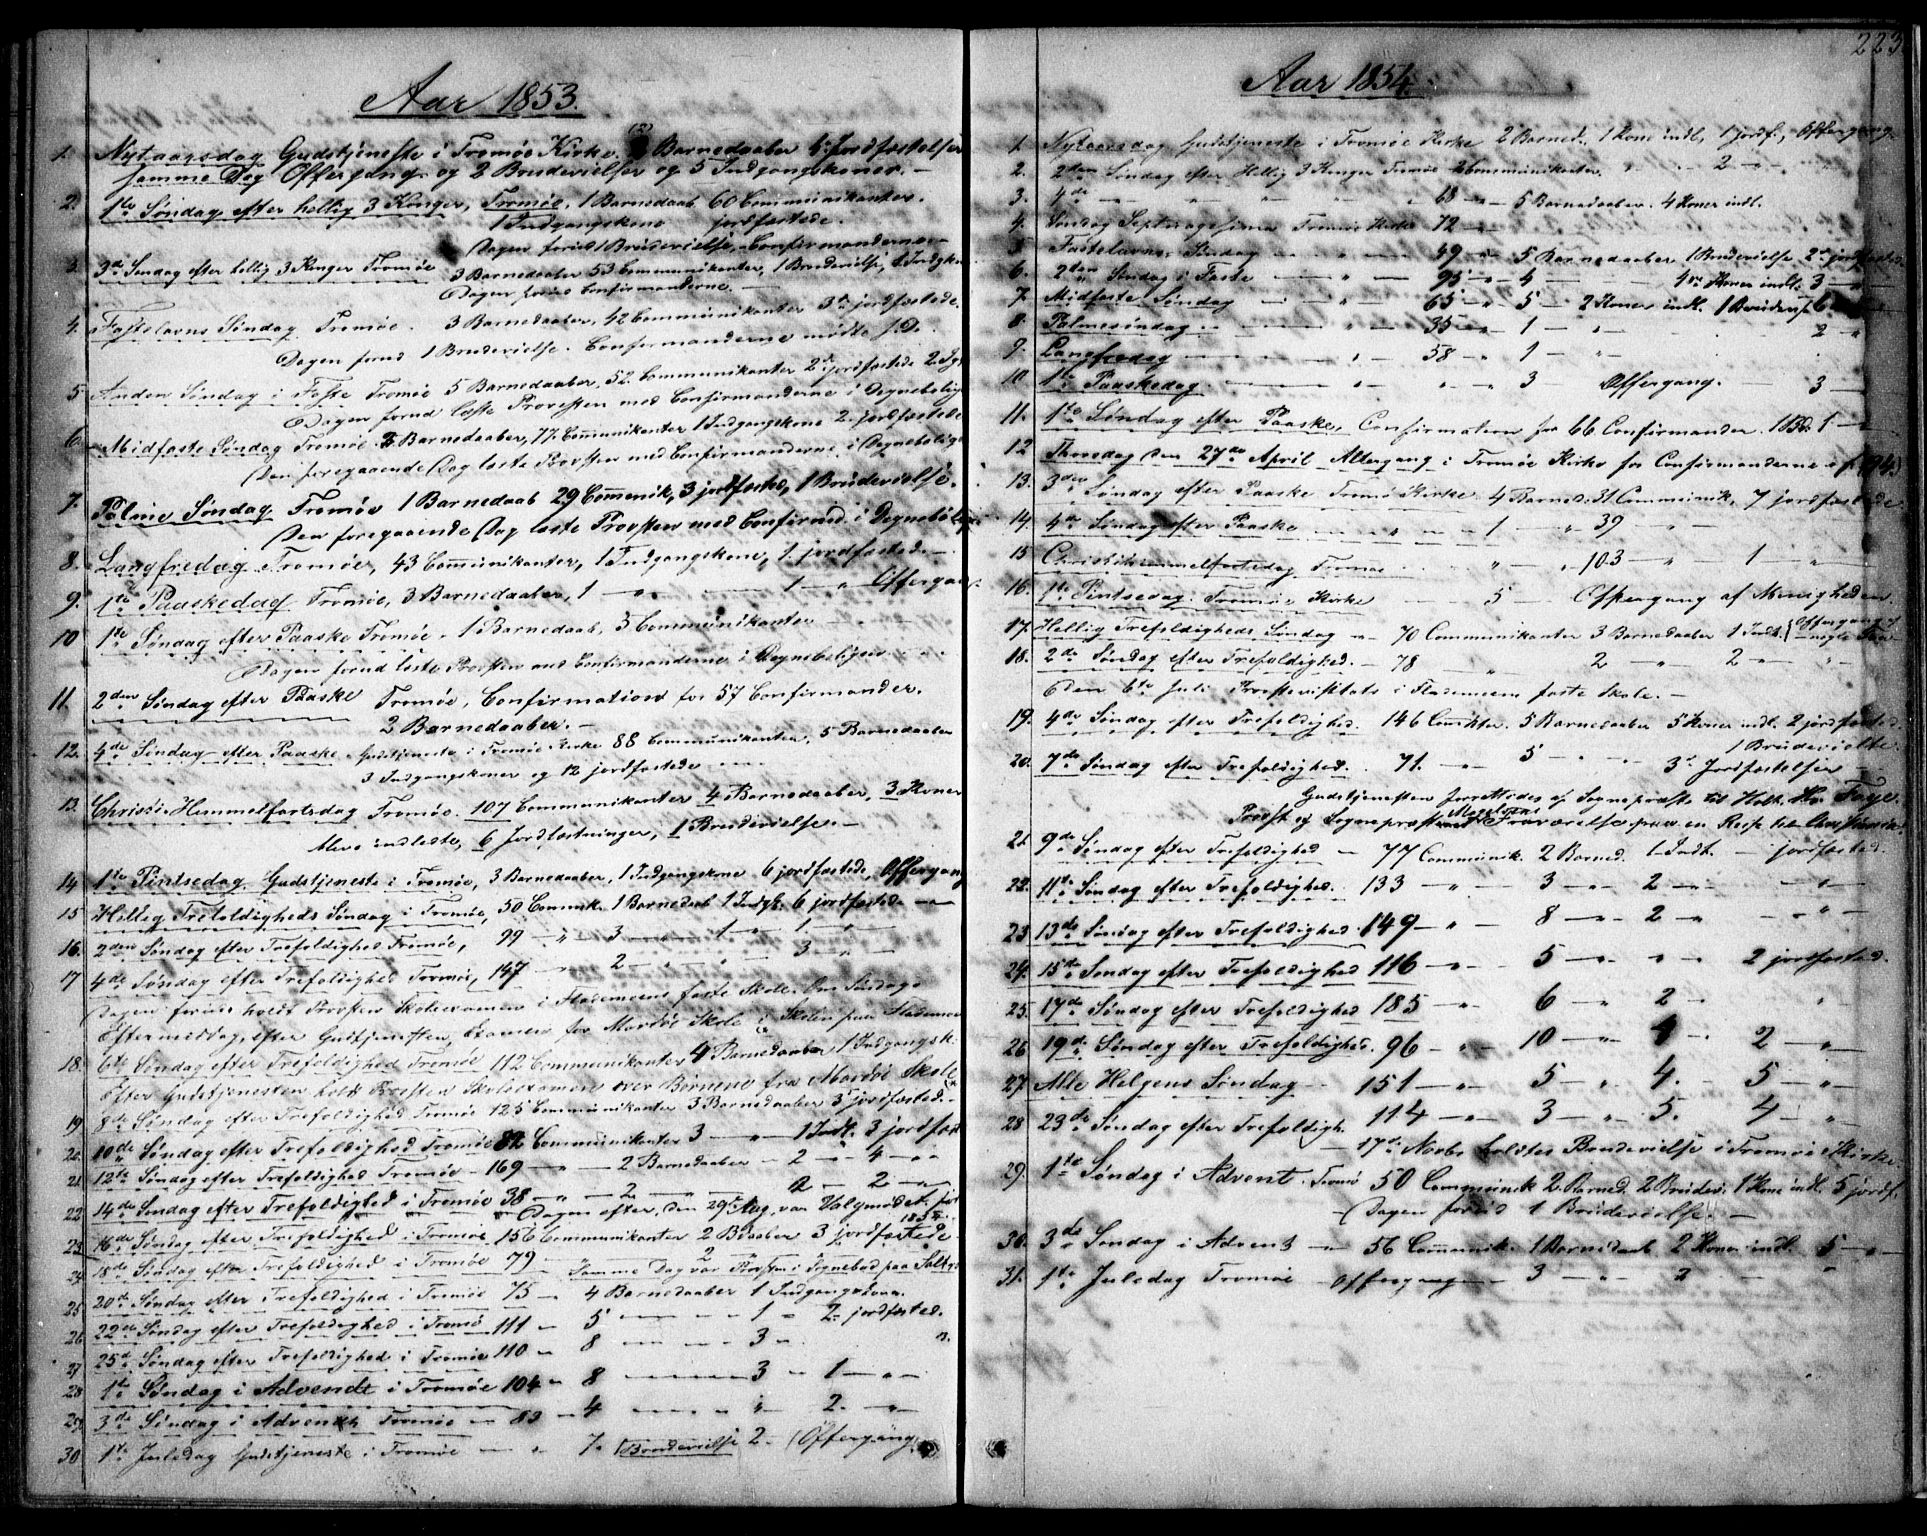 Aar 1853.
1. Nytaarsdag Gudstjeneste i Tromøe Kirke. (2) Barnedaaber 4 Jordfæstelser
samme Dag Offergang og 2 Brudevielser og 5 Indgangskoner.
2. 1te Søndag efter hellig 3 Konger, Tromøe, 1 Barnedaab 60 Communikanter.
1 Indgangskone jordfæstede.
Dagen forud 1 Brudevielse, Confirmanderne
3. 3de Søndag efter hellig 3 Konger Tromøe 3 Barnedaaber 53 Communikanter, 1 Brudevielse, 1 Indgk
Dagen forud Confirmanderne.
4. Fastelavns Søndag Tromøe. 3 Barnedaaber, 42 Communikanter 3de jordfæstede.
Dagen forud 1 Brudevielse. Confirmanderne mødte
5. Anden Søndag i Faste Tromøe 5 Barnedaaber, 52 Communikanter 2de jordfæstede 2
Dagen forud læste Provsten med Confirmanderne i Degnebolig
6. Midfaste Søndag Tromøe 2 Barnedaaber, 77 Communikanter 1 Indgangskone 2 jordfæstede
Den foregaaende Dag læste Provsten med Confirmanderne i Degnebolig
7. Palme Søndag Tromøe 1 Barnedaab 29 Comunik, 3 jordfæsted, 1 Brudevielse.
Den foregaaende Dag læste Provsten med Confirmd. i Degnebolig
8. Langfredag Tromøe, 43 Communikanter, 1 Indgangskone, 1 jordfæstede
9. 1te Paaskedag Tromøe, 3 Barnedaaber, 1 — " — 1 — " Offergang
10 1te Søndag efter Paaske Tromøe. 1 Barnedaab, 3 Communikanter
Dagen forud læste Provsten med Confirmanderne i Degneboligen
11. 2den Søndag efter Paaske Tromøe, Confirmation for 57 Confirmander.
2 Barnedaaber.
12. 4de Søndag efter Paaske Gudstjeneste i Tromøe Kirke 88 Communikanter, 5 Barnedaaber
3 Indgangskoner og 12 jordfæstede
13. Christi Himmelfartsdag Tromøe. 107 Communikanter 4 Barnedaaber, 3 Koner
bleve indledte, 6 Jordfæstninger, 1 Brudevielse.
14 1te Pintsedag Gudstjeneste i Tromøe, 3 Barnedaaber, 1 Indgangskone 6 jordfæstede, Offergang
15 Hellig Trefoldigheds Søndag i Tromøe, 50 Commnk. 1 Barnedaab 1 Indgk. 6 jordfæstede
16. 2den Søndag efter Trefoldighed Tromøe, 99 — " — 3 — 1 — 1
17 4de Søndag efter Trefoldighed Tromøe, 147 — 2 — " — 3 —
Dagen forud holdt Provsten Skoleexamen i Fladenvens faste Skole. Om Søndags
Eftermiddag, efter Gudstjenesten, Examen for Mordøe Skole i Skolen paa
18. 6te Søndag efter Trefoldighed Tromøe 112 Communikanter 4 Barnedaaber 1 Indgangsk.
Efter Gudstjenesten holdt Provsten Skoleexamen over Børnene fra Mordøe Skole
19 8de Søndag efter Trefoldighed Tromøe 125 Communikanter 3 Barnedaaber 3 jordfæsted.
20. 10de Søndag efter Trefoldighed Tromøe 82 Communikanter 3 — " — 1 Indl. 3 jordfæst
21. 12te Søndag efter Trefoldighed Tromøe 169 — " — 2 Barnedaaber — 2 — 4 —
22 14de Søndag efter Trefoldighed i Tromøe 38 — " — 2 — 2 — 2 —
Dagen efter, den 29de Aug. var Valgmødet for
23 16de Søndag efter Trefoldighed i Tromøe 156 Communikanter 2 Bdaaber 3 jordfæstede
24 18de Søndag efter Trefoldighed i Tromøe 79 — 2
Samme Dag var Provsten i Sognebud paa
25 20de Søndag efter Trefoldighed i Tromøe 75 — 4 Barnedaaber 1 Indgangskone.
26 22de Søndag efter Trefoldighed i Tromøe 111 — 5 — 1 — 2 jordfæsted.
27 25de Søndag efter Trefoldighed i Tromøe 110 — 8 — 3 —
28 1te Søndag i Advendt i Tromøe 104 — 8 — 3 — 1 — " —
29 3de Søndag i Advendt Tromøe — 83 — 4 — " — 2. — " —
30 1te Juledag Gudstjeneste i Tromøe — " 7. 1 Brudevielse 2. (Offergang.
223
Aar 1854.
1. Nytaarsdag Gudstjeneste i Tromøe Kirke 2 Barned. 1 Kone indl, 1 jordf, Offergang.
2. 2den Søndag efter Hellig 3 Konger Tromøe Communikanter. " — " — 2 — "
3. 4de — " — " — 68 — 5 Barnedaaber. 4 Koner indl.
4. Søndag Septuagesima Tromøe Kirke 72 —
5 Fastelavns Søndag — " 49 — " 5 Barnedaaber 1 Brudevielse 2de jordfæsted
6. 2den Søndag i Faste — " 95 — " 4 — 4re Koner indl. 3 — "
7. Midfaste Søndag — " 65 — " 5 — 2 Koner indl. 1 Brudev. 6
8. Palmesøndag — " 35 — " 1 — " 2 "
9. Langfredag — " 58 — " 1 — " —
10 1te Paaskedag — " " — " 3 Offergang. — 3 —
11. 1te Søndag efter Paaske, Confirmation for 66 Confirmander. 1 Bd. 1 — "
12 Thorsdag den 27de April Altergang i Tromøe Kirke for Confirmanderne (94)
13. 3den Søndag efter Paaske Tromøe Kirke 4 Barned: 31 Communik, 7 jordfæstede
14. 4de Søndag efter Paaske — " — 1 — " 39 " —
15 Christihimmelfartsdag Tromøe — " — " 103 — " 1 — "
16. 1te Pintsedag. Tromøe Kirke — 5 — Offergang af Menigheden
17. Hellig Trefoldigheds Søndag — 70 Communikanter 3 Barnedaaber 1 Indl. (Offergang af nogle
18. 2de Søndag efter Trefoldighed. — 78 " 2 — " 2 — " — "
Den 6te Juli Provstevisitats i Fladenvens faste Skole. —
19. 4de Søndag efter Trefoldighed. 146 Comktr. 5 Barnedaaber 5 Koner indl. 2 jordfæsted.
1 Brudevielse
20. 7de Søndag efter Trefoldighed. 71. — " 5 — " 3de Jordfæstelser
Gudstjenesten forrettedes af Sognepræst til Holt Hr. Faye.
Provst og Sognepræst Fraværelse paa en Reise til Christiania
21. 9de Søndag efter Trefoldighed — 77 Communik. 2 Barned. 1 Indl. — jordfæsted.
22. 11te Søndag efter Trefoldighed. 133 — " — 3 — " 2 — " — "
23 13de Søndag efter Trefoldighed 149 — " 8 — " 2 — " — " —
24. 15de Søndag efter Trefoldighed 116 — " 5 — " " — " 2 jordfæsted.
25. 17de Søndag efter Trefoldighed 185 — " 6 — " 2 — "
26 19de Søndag efter Trefoldighed. 96 — " 10 — " 4 — 2 — "
27. Alle Helgens Søndag — 151 — " 5 — " 4. 5 — "
28 23de Søndag efter Trefoldigh. 114 — " 3 — " 5. 4 — "
17de Novbr. holdtes Brudevielse i Tromøe Kirke
29. 1te Søndag i Advent. Tromø 50 Communik 2 Barned. 2 Brudev. 1 Kone indl. 5 jordf.
Dagen forud 1 Brudevielse. —
30. 3de Søndag i Advent — 56 Communik. 1 Barnedaab 2 Koner indl. 5 — "
31. 1te Juledag Tromøe — Offergang — 3 — " 2 — "